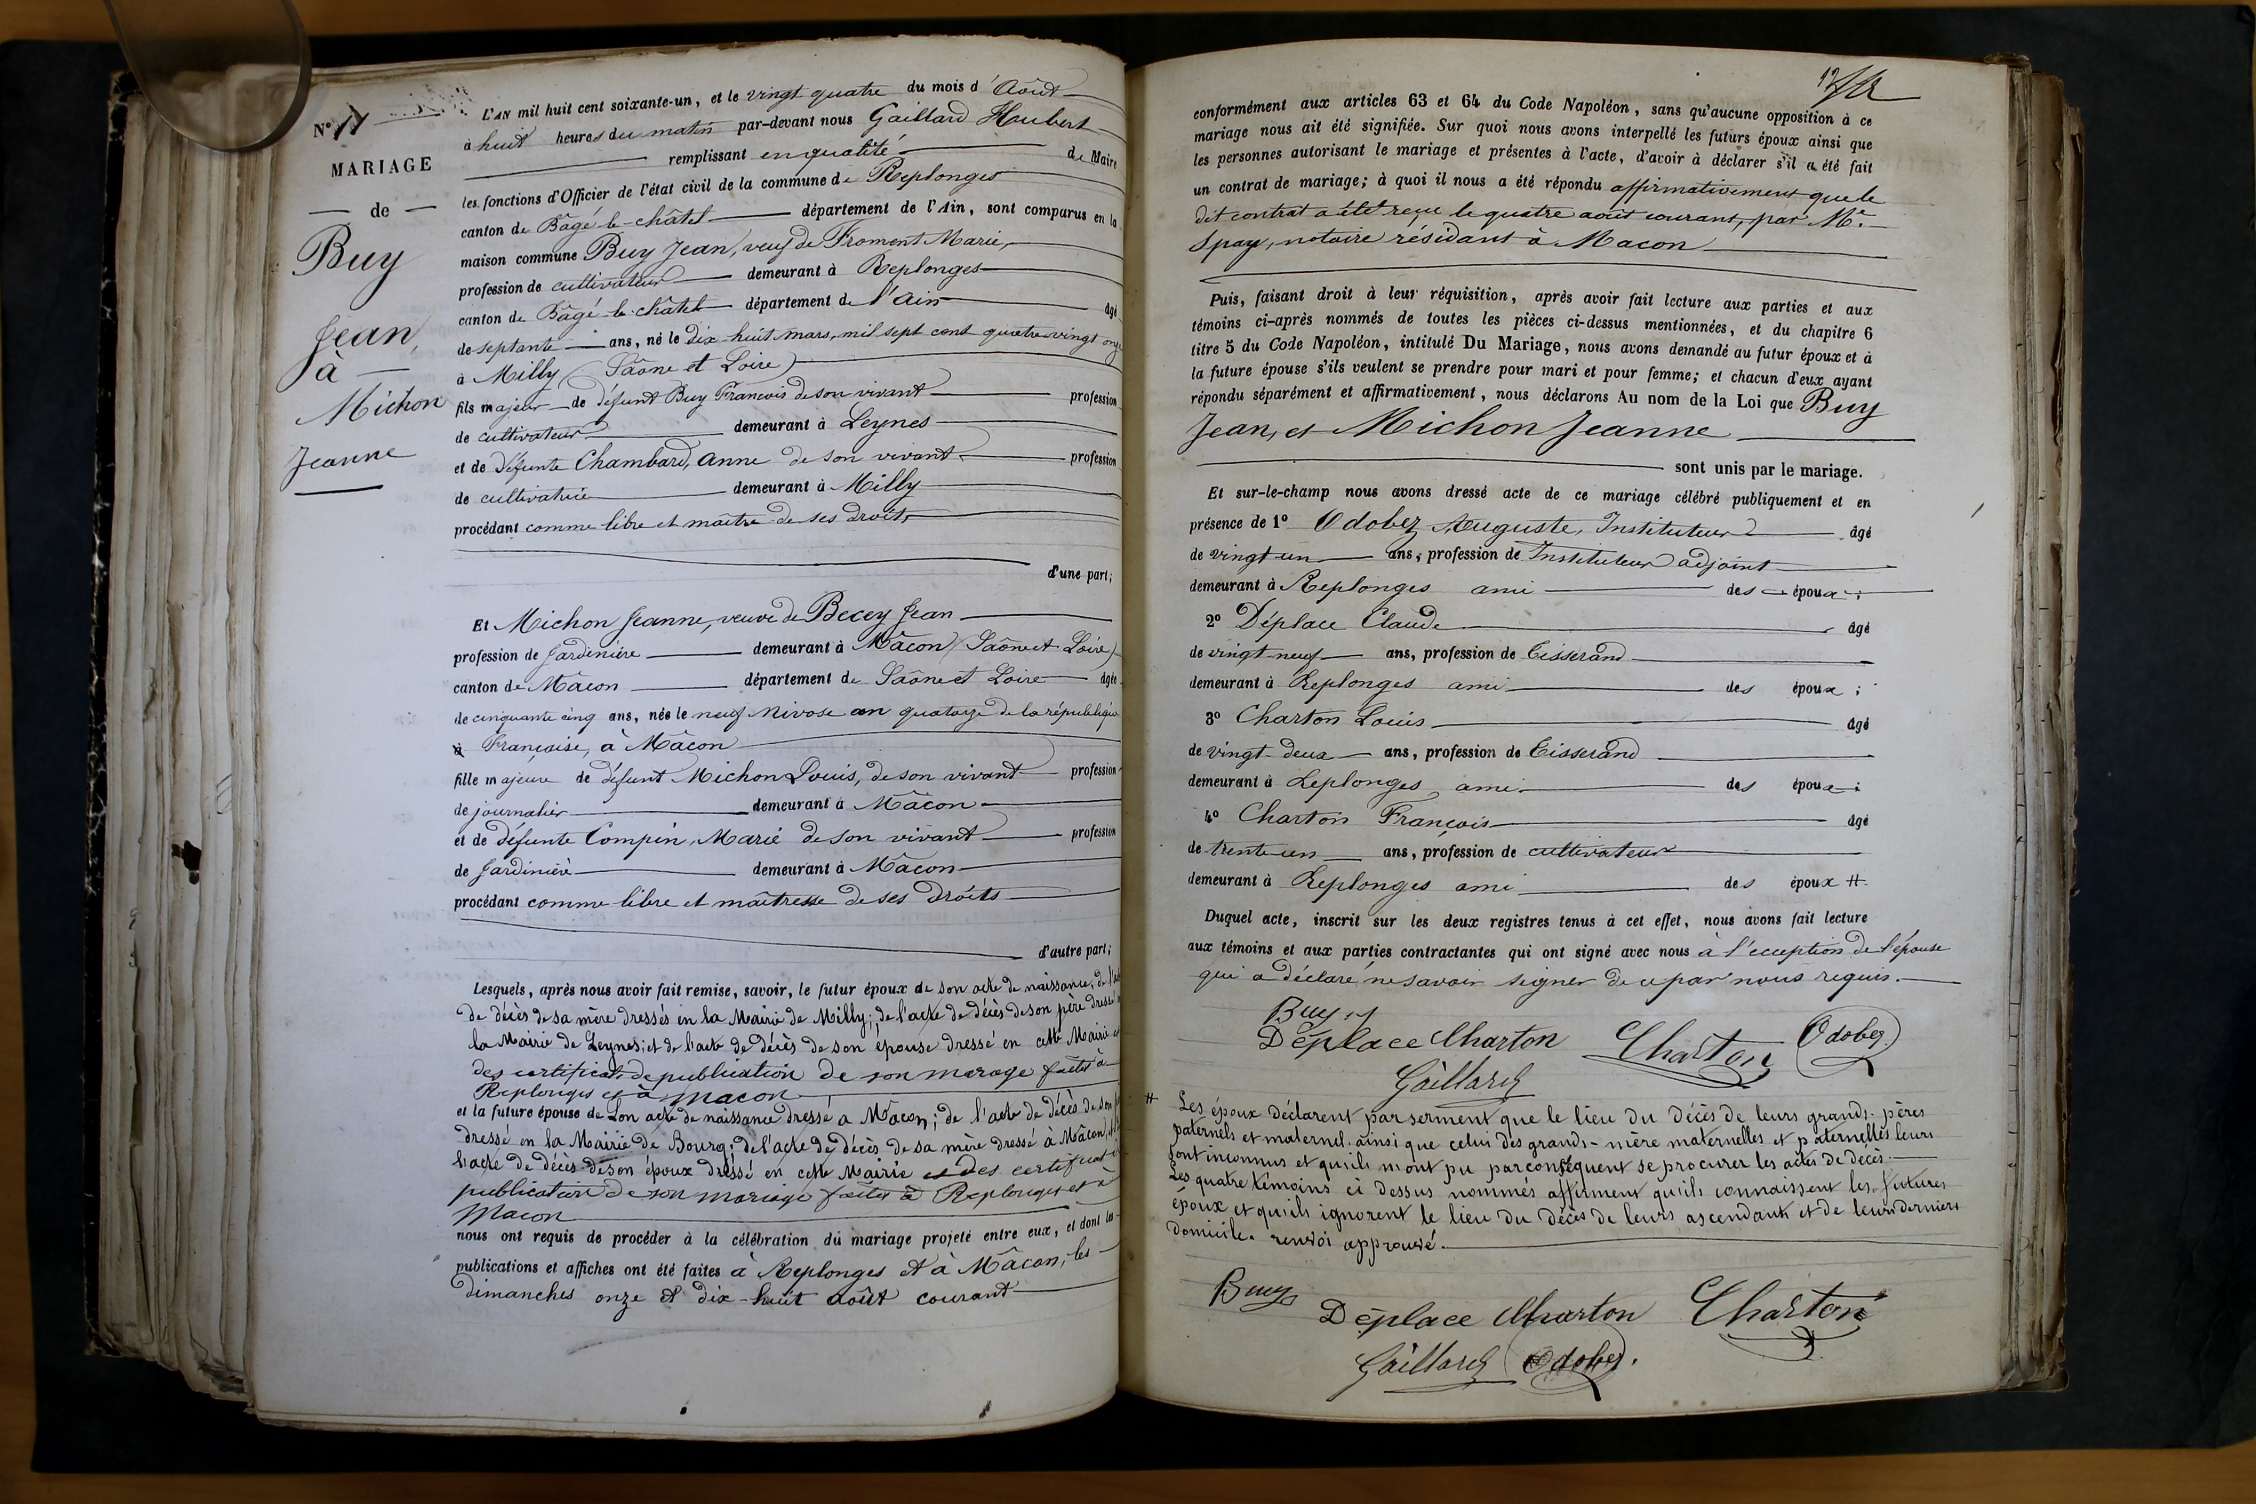 N° 17
MARIAGE
de
Buy
Jean,
à
Michon
Jeanne
L'AN mil huit cent soixante-un, et le vingt quatre du mois d'Août
à huit heures du matin par-devant nous Gaillard Hubert
remplissant en qualité de Maire
les fonctions d'Officier de l'état civil de la commune de Replonges
canton de Bâgé-le-châtel département de l'Ain, sont comparus en la
maison commune Buy Jean, veuf de Froment Marie,
profession de cultivateur demeurant à Replonges
canton de Bâgé-le-châtel département de l'Ain âgé
de septante ans, né le dix-huit mars, mil sept cent quatre-vingt onze
à Milly (Saône et Loire)
fils majeur de défunt Buy François de son vivant profession
de cultivateur demeurant à Leynes
et de défunte Chambard, Anne de son vivant profession
de cultivatrice demeurant à Milly
procédant comme libre et maître de ses droits,
d'une part;
Et Michon Jeanne, veuve de Becey Jean
profession de Jardinière demeurant à Mâcon (Saône et Loire)
canton de Mâcon département de Saône et Loire âgée
de cinquante cinq ans, née le neuf Nivose an quatorze de la république
à Française, à Mâcon
fille majeure de défunt Michon Louis, de son vivant profession
de journalier demeurant à Mâcon
et de défunte Compin, Marie de son vivant profession
de Jardinière demeurant à Mâcon
procédant comme libre et maîtresse de ses droits
d'autre part;
Lesquels, après nous avoir fait remise, savoir, le futur époux de son acte de naissance, de l'acte
de décès de sa mère dressés en la Mairie de Milly; de l'acte de décès de son père dressé
la Mairie de Leynes; et de l'acte de décès de son épouse dressé en cette Mairie et
des certificats de publication de son mariage faites à
Replonges et à Macon
et la future épouse de son acte de naissance dressé a Mâcon; de l'acte de décès de son
dressé en la Mairie de Bourg; de l'acte de décès de sa mère dressé à Mâcon,
l'acte de décès de son époux dressé en cette Mairie et des certificats
publication de son mariage faites à Replonges et à
Macon
nous ont requis de procéder à la célébration du mariage projeté entre eux, et dont les
publications et affiches ont été faites à Replonges et à Mâcon, les
dimanches onze et dix-huit août courant
conformément aux articles 63 et 64 du Code Napoléon, sans qu'aucune opposition à ce
mariage nous ait été signifiée. Sur quoi nous avons interpellé les futurs époux ainsi que
les personnes autorisant le mariage et présentes à l'acte, d'avoir à déclarer s'il a été fait
un contrat de mariage; à quoi il nous a été répondu affirmativement que le
dit contrat a été reçu le quatre août courant, par Me.
Spay, notaire résidant à Macon
Puis, faisant droit à leur réquisition, après avoir fait lecture aux parties et aux
témoins ci-après nommés de toutes les pièces ci-dessus mentionnées, et du chapitre 6
titre 5 du Code Napoléon, intitulé Du Mariage, nous avons demandé au futur époux et à
la future épouse s'ils veulent se prendre pour mari et pour femme; et chacun d'eux ayant
répondu séparément et affirmativement, nous déclarons Au nom de la Loi que Buy
Jean, et Michon Jeanne
sont unis par le mariage.
Et sur-le-champ nous avons dressé acte de ce mariage célébré publiquement et en
présence de 1° Odobez Auguste, Instituteur âgé
de vingt un ans, profession de Instituteur adjoint
demeurant à Replonges ami des époux;
2° Déplace Claude âgé
de vingt-neuf ans, profession de Tisserand
demeurant à Replonges ami des époux;
3° Charton Louis âgé
de vingt-deux ans, profession de Tisserand
demeurant à Replonges ami des époux;
4° Charton François âgé
de trente-un ans, profession de cultivateur
demeurant à Replonges ami des époux #.
Duquel acte, inscrit sur les deux registres tenus à cet effet, nous avons fait lecture
aux témoins et aux parties contractantes qui ont signé avec nous à l'éception de l'épouse
qui a déclaré ne savoir signer de ce par nous requis.
Buy
Déplace Charton Charton Odobez
Gaillard
# Les époux déclarent par serment que le lieu du décès de leurs grands-pères
paternels et maternel ainsi que celui des grands-mère maternelles et paternelles leurs
sont inconnus et qu'ils n'ont pu par conséquent se procurer les actes de décès.
Les quatre témoins ci dessus nommés affirment qu'ils connaissent les futures
époux et qu'ils ignorent le lieu du décès de leurs ascendants et de leurs derniers
domicile. renvoi approuvé.
Buy
Déplace Charton Charton
Gaillard Odobez.